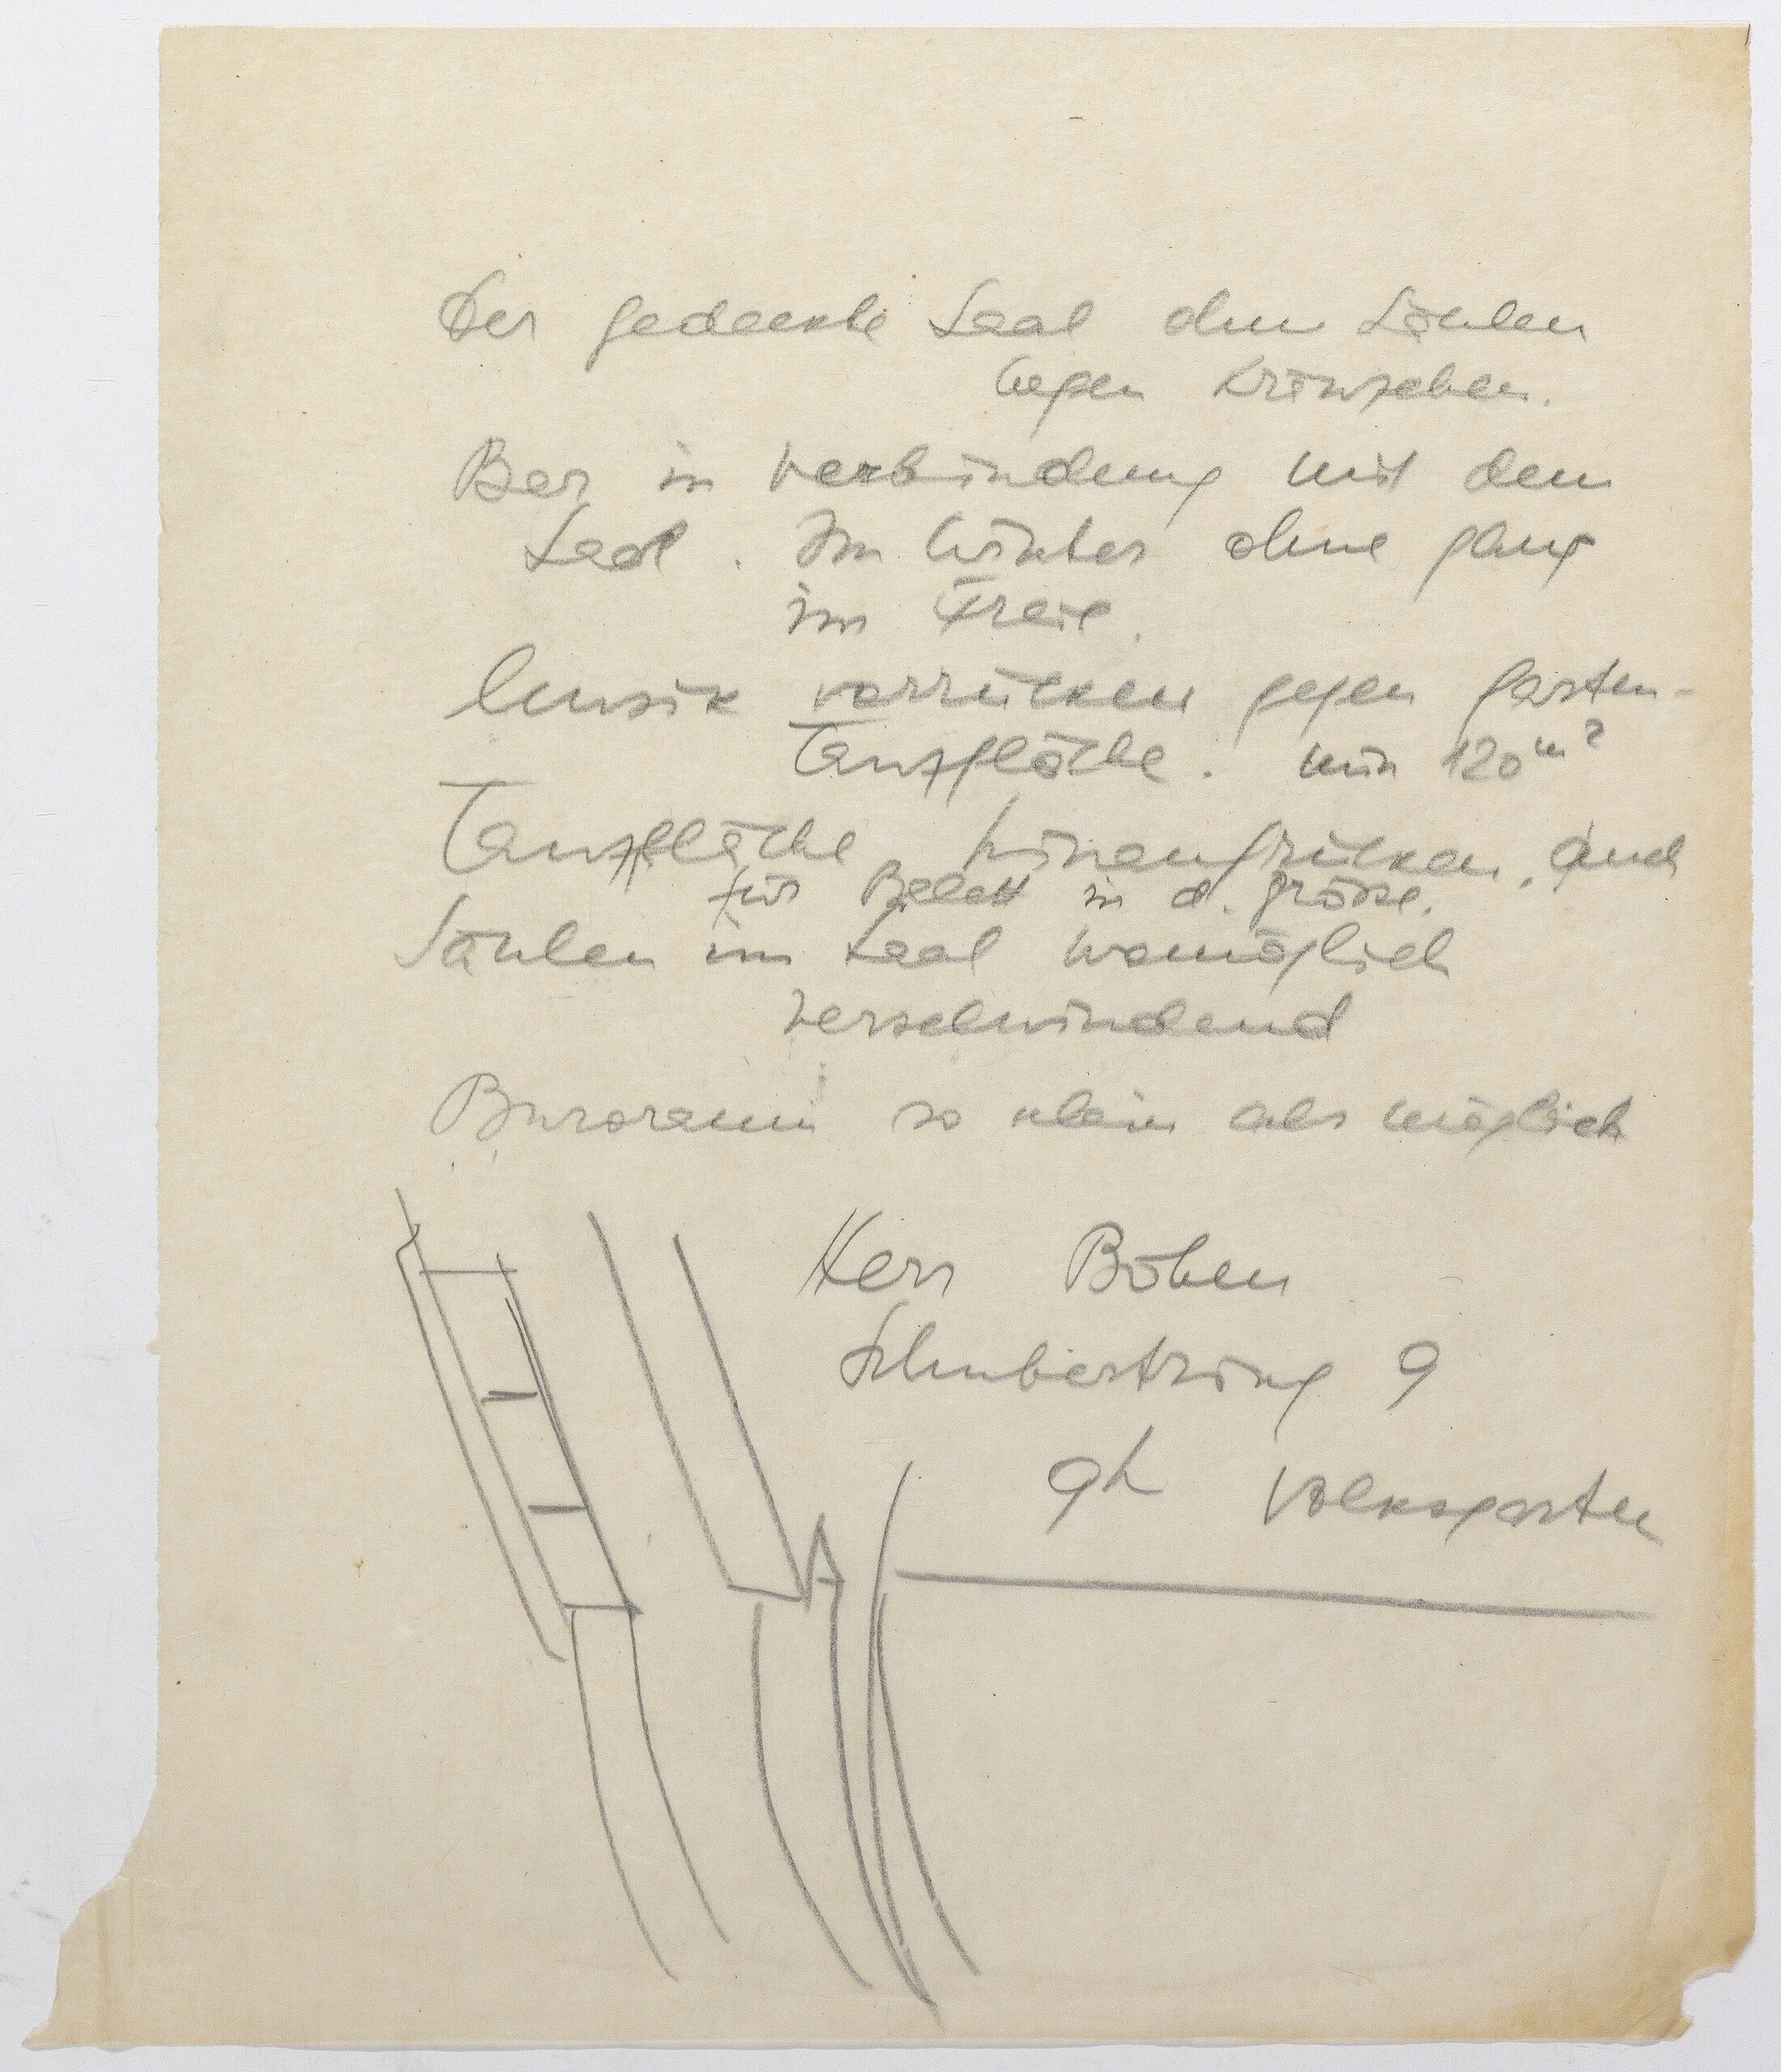 Der gedeckte Saal ohne Säulen
wegen Kränzchen.
Bar in Verbindung mit dem
Saal. Im Winter ohne gang
im Freie.
Musik vorrücken gegen garten-
Tanzfläche. min 120 m²
Tanzfläche hinaufrücken, auch
für Balett in d. größe.
Säulen im Saal womöglich
verschwindend
Buroraum so klein als möglich
Herr Böhm
Schubertring 9
9h Volksgarten